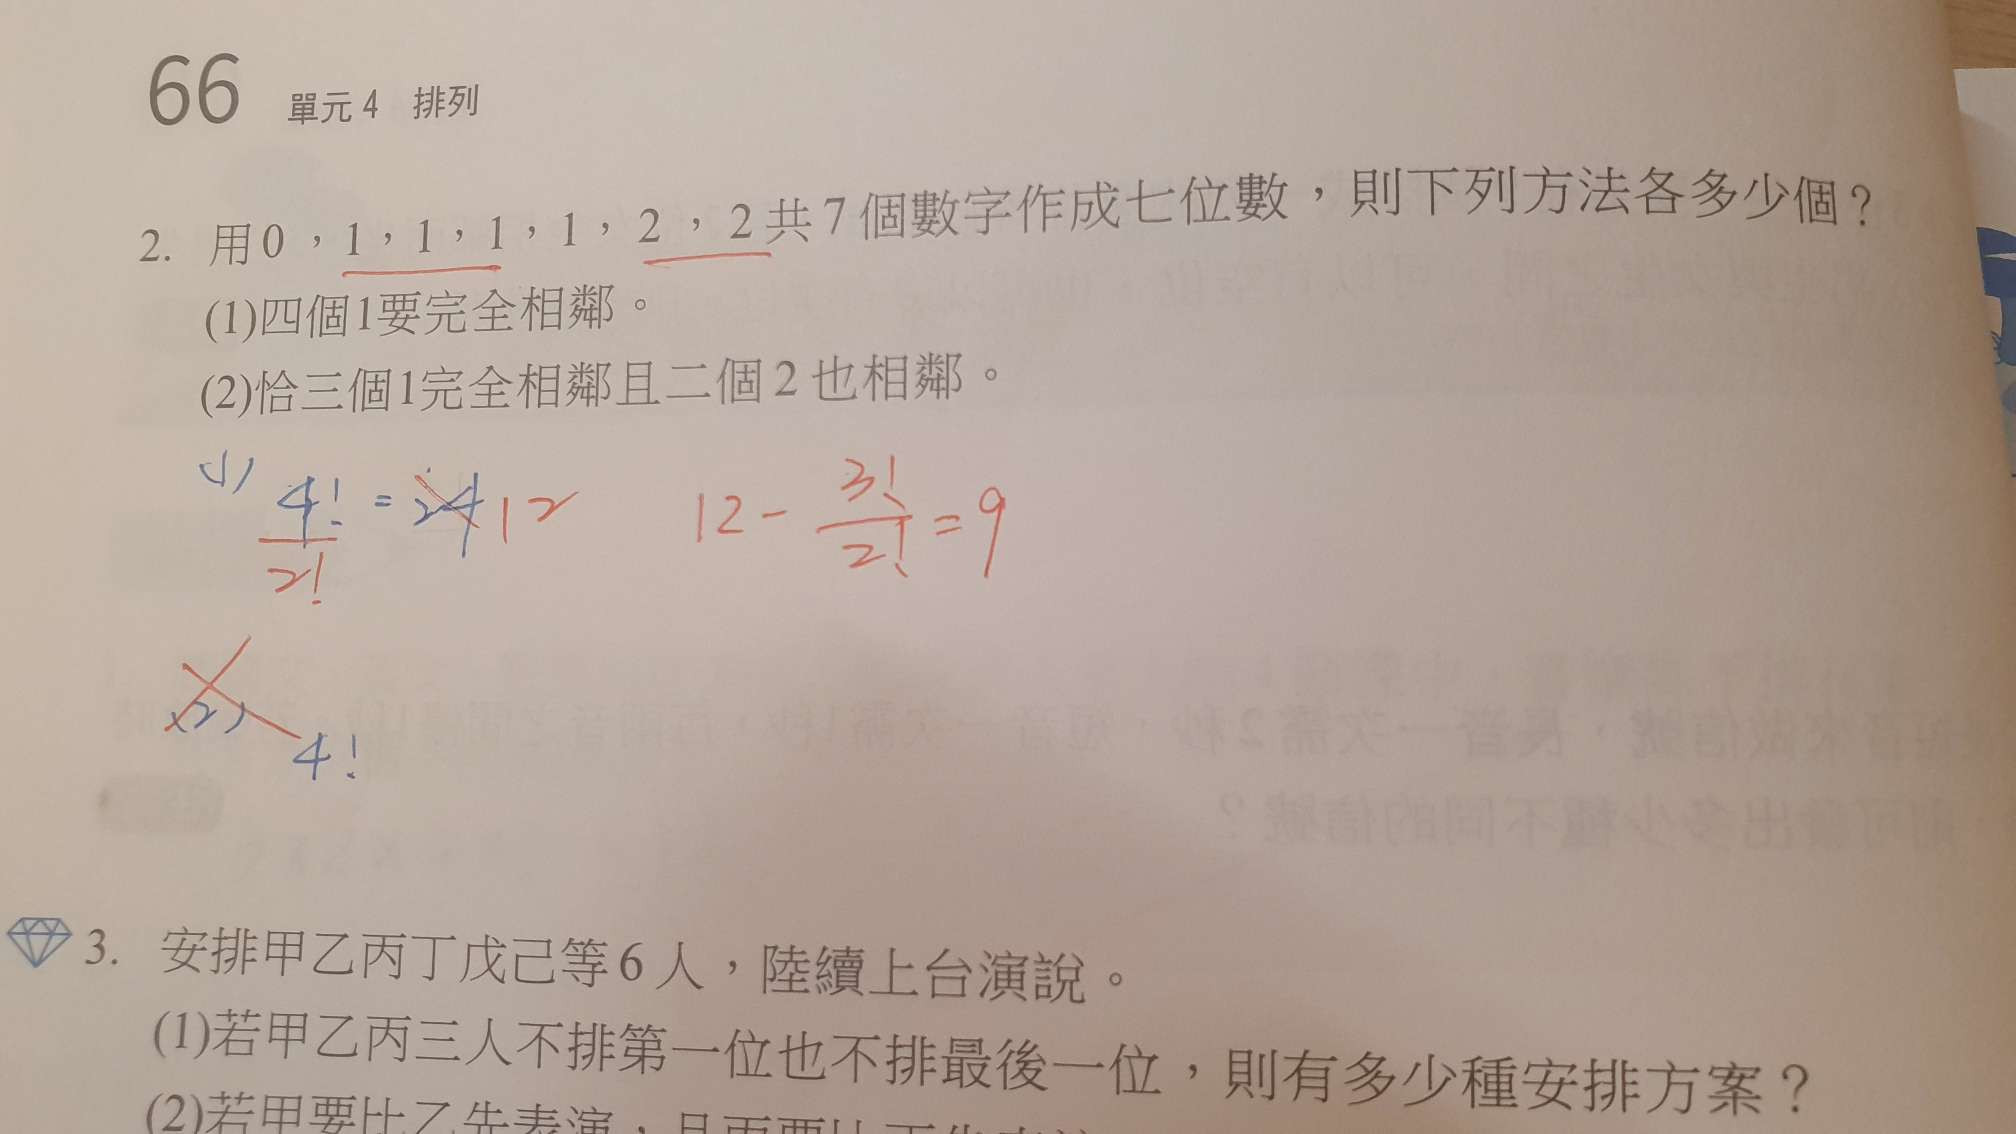 66 單元 4 排列
2. 用0，1，1，1，1，2，2共7個數字作成七位數，則下列方法各多少個？
(1)四個1要完全相鄰。
(2)恰三個1完全相鄰且二個2也相鄰。
(1) 4!/2! = 24 12 12 - 3!/2! = 9
(2) 4!
3. 安排甲乙丙丁戊己等6人，陸續上台演說。
(1)若甲乙丙三人不排第一位也不排最後一位，則有多少種安排方案？
(2)若甲要比乙先表演，且